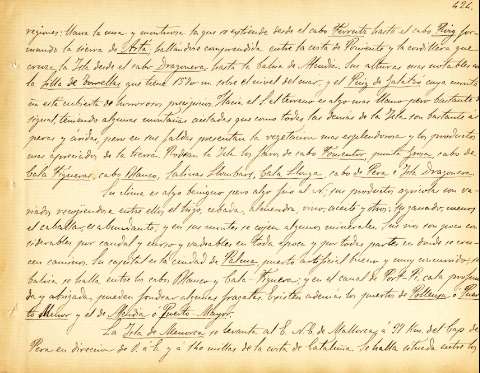 424.
regiones: Llana la una y montuosa la que se extiende desde el cabo Ferrutx hasta el cabo Roig for-
mando la sierra de Artá, hallandose comprendida entre la costa de Poniente y la cordillera que
cruza la Isla desde el cabo Dragonera hasta la bahia de Alcudia. Sus alturas mas notables son
la silla de torrellas que tiene 1570 m sobre el nivel del mar y el Puig de Galatzo cuya cumbre
esta cubierta de hermosos Hacia el S. el terreno es algo mas llano pero bastante de-
sigual, teniendo algunas montañas aisladas que como todas las demas de la Isla son bastante as-
peras y áridas, pero en sus faldas presentan la vegetacion mas esplendorosa y los productos
mas apreciados de la tierra. Rodean la Isla los faros de cabo Formentor, punta Grosa, cabo de
Cala Figueras, cabo Blanco, Salinas, Cala Llonga, cabo de Pera é Isla Dragonera.
Su clima es algo benigno pero algo frio al N. sus productos agricolas son va-
riados recojiendose entre ellos el trigo, cebada, almendra, vino, aceite y otros; su ganado, menos
el caballar, es abundante, y en sus montes se cojen algunos minerales. Sus rios son poco con-
siderables por caudal y curso y vadeables en toda época y por todas partes en donde se cru-
cen caminos. Su capital es la ciudad de Palma, puerto artificial bueno y muy concurrido; su
bahia se halla entre los cabos Blanco y Cala Figuera; y en el canal de cala profun-
da y abrigada, pueden fondear algunas fragatas. Existen ademas los puertos de Pollensa, ó Puer-
to Menor y el de Alcudia ó Puerto Mayor.
La Isla de Menorca se levanta al E. N. E. de Mallorca, á 37 Km. del Cap de
Pera en direccion de O. á E. y á 140 millas de la costa de Cataluña. Se halla situada entre los